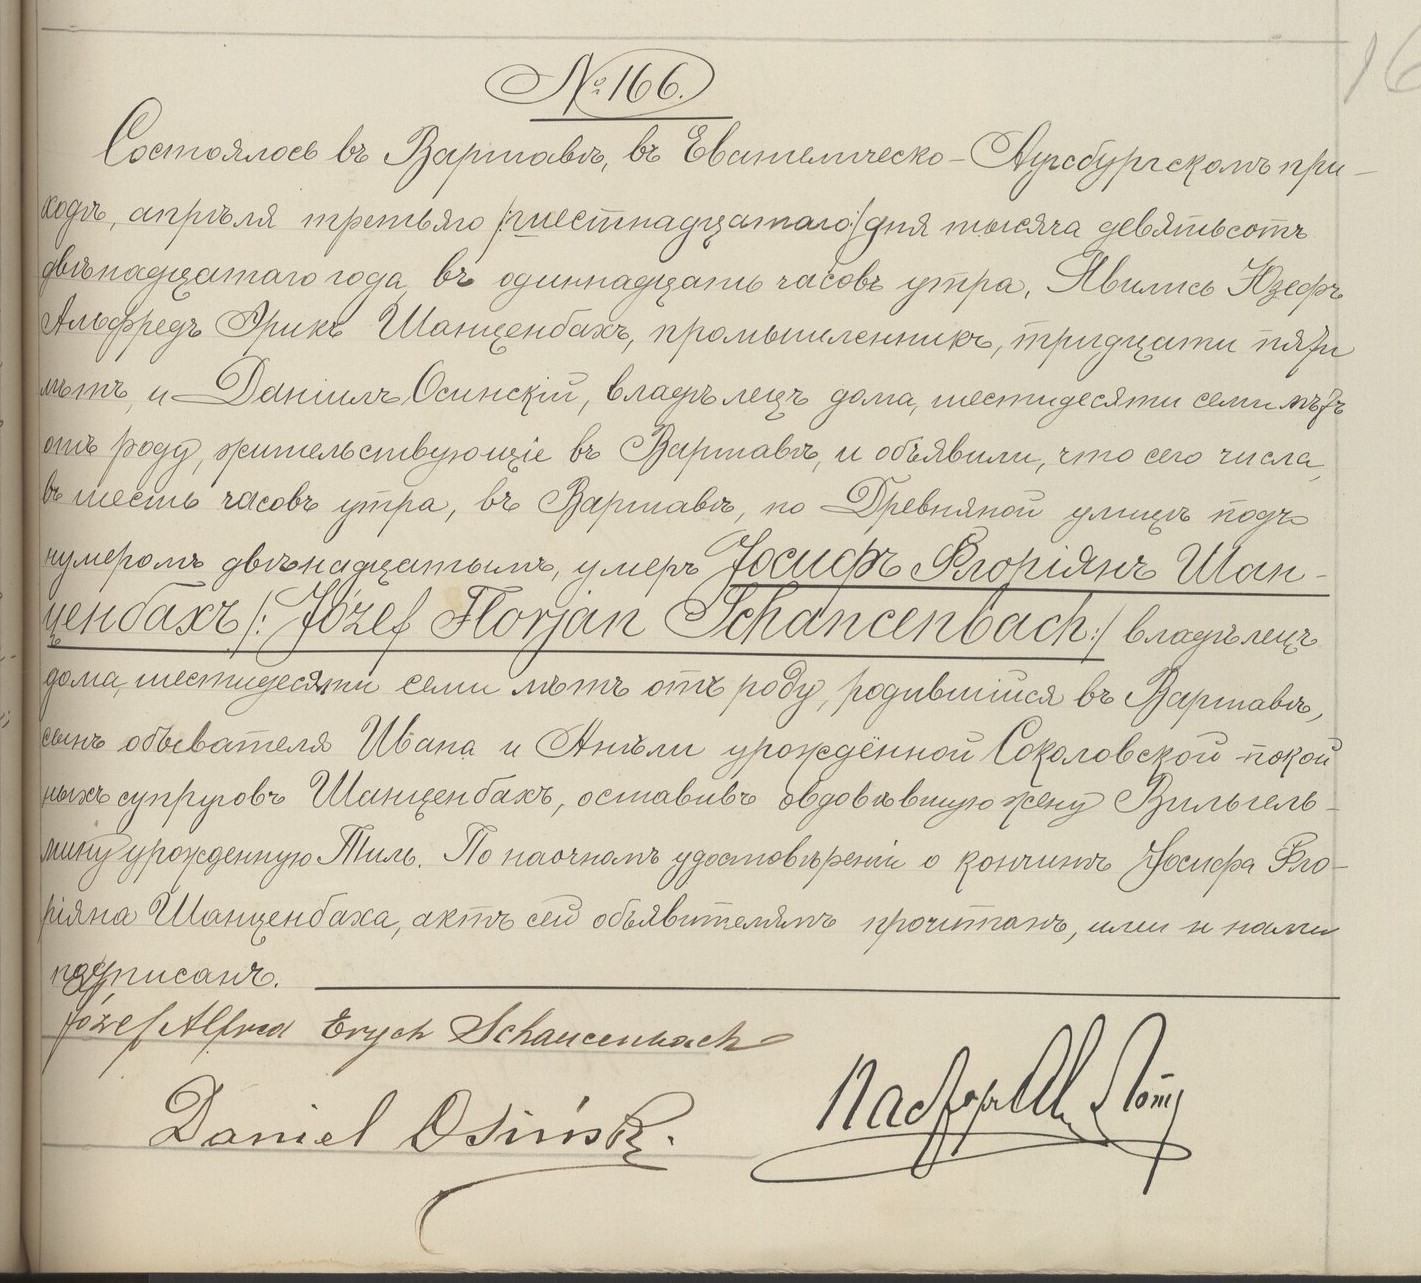 № 166.
Состоялось въ Варшавѣ, въ Евангелическо-Аугсбургскомъ при-
ходѣ, апрѣля третьяго /:шестнадцатаго:/ дня тысяча девятьсотъ
двѣнадцатаго года, въ одиннадцать часовъ утра. Явились Юзефъ
Альфредъ Эрикъ Шанценбахъ, промышленникъ, тридцати пяти
лѣтъ, и Даніилъ Осинскій, владѣлецъ дома, шестидесяти семи лѣтъ
отъ роду, жительствующіе въ Варшавѣ, и объявили, что сего числа,
въ шесть часовъ утра, въ Варшавѣ, по Древняной улицѣ подъ
нумеромъ двѣнадцатымъ, умеръ Іосифъ Флоріянъ Шан-
ценбахъ /:Józef Florjan Schancenbach:/ владѣлецъ
дома, шестидесяти семи лѣтъ отъ роду, родившійся въ Варшавѣ,
сынъ обывателя Ивана и Анѣли урождённой Соколовской покой
ныхъ супруговъ Шанценбахъ, оставивъ овдовѣвшую жену Вильгель-
мину урожденную Тиль. По наочномъ удостовѣреніи о кончинѣ Іосифа Фло-
ріяна Шанценбаха, актъ сей объявителямъ прочитанъ, ими и нами
подписанъ.
Józef Alfred Erych Schancenbach
Daniel Osiński.
Пасторъ